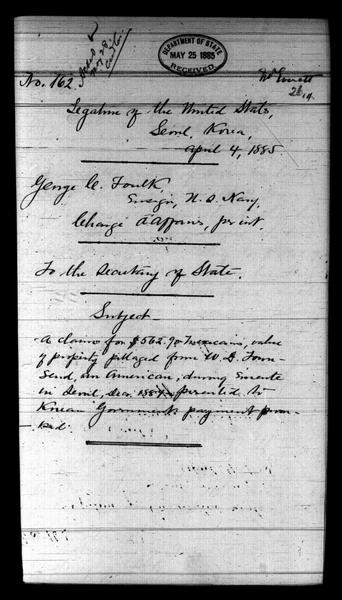 DEPARTMENT OF STATE
MAY 25 1885
RECEIVED
No. 162.
Legation of the United States,
Seoul, Korea,
April 4, 1885
George C. Foulk,
Ensign, U.S. Navy,
Chargé d'Affaires, pr. int.
To the Secretary of State.
Subject—
A claim for $562.70 Mexicans, value
of property pillaged from W. D. Town-
send, an American, during Emeute
in Seoul, Dec. 1884, presented to
Korean Government: payment prom-
ised.